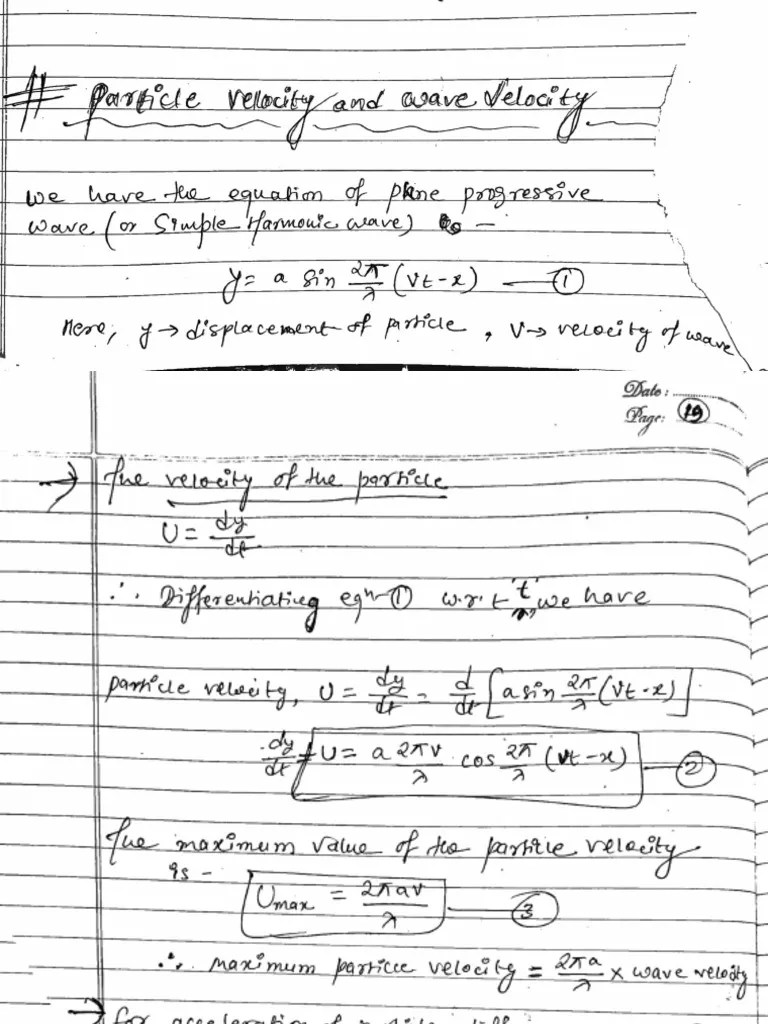 # Particle velocity and wave velocity
we have the equation of plane progressive
wave (or Simple Harmonic wave) is —
y = a sin 2π/λ (vt-x) — ①
Here, y → displacement of particle, v → velocity of wave
Date:
Page: 19
→ The velocity of the particle
U = dy/dt
∴ Differentiating eqn ① w.r.t 't' we have
particle velocity, U = dy/dt = d/dt [a sin 2π/λ (vt-x)]
dy/dt = U = a 2πv/λ cos 2π/λ (vt-x) — ②
The maximum value of the particle velocity
is -
Umax = 2πav/λ — ③
∴ maximum particle velocity = 2πa/λ x wave velocity
→ for acceleration of